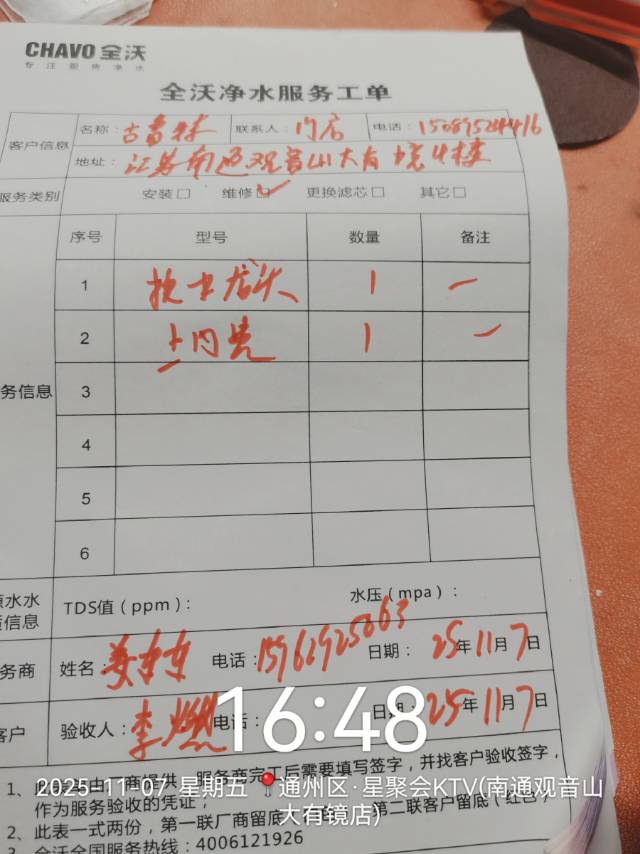 CHAVO 全沃
专注厨房净水
全沃净水服务工单
客户信息
名称: 古茗 联系人: 门店 电话:
地址: 江苏南通观音山大有 4楼
服务类别 安装□ 维修☑ 更换滤芯□ 其它□
序号 型号 数量 备注
1 换卡龙头 1 —
2 卡内 1 —
务信息
3
4
5
6
原水水
质信息
TDS值(ppm): 水压(mpa):
务商 姓名: 电话: 15961925063 日期: 25年11月7日
客户 验收人: 李燃 电话: 日期: 25年11月7日
16:48
2025-11-07 星期五 通州区·星聚会KTV(南通观音山大有镜店)
1、此表 由厂商提供,服务商完工后需要填写签字,并找客户验收签字,
作为服务验收的凭证;
2、此表一式两份,第一联厂商留底 第二联客户留底(红色)
3、全沃全国服务热线:4006121926